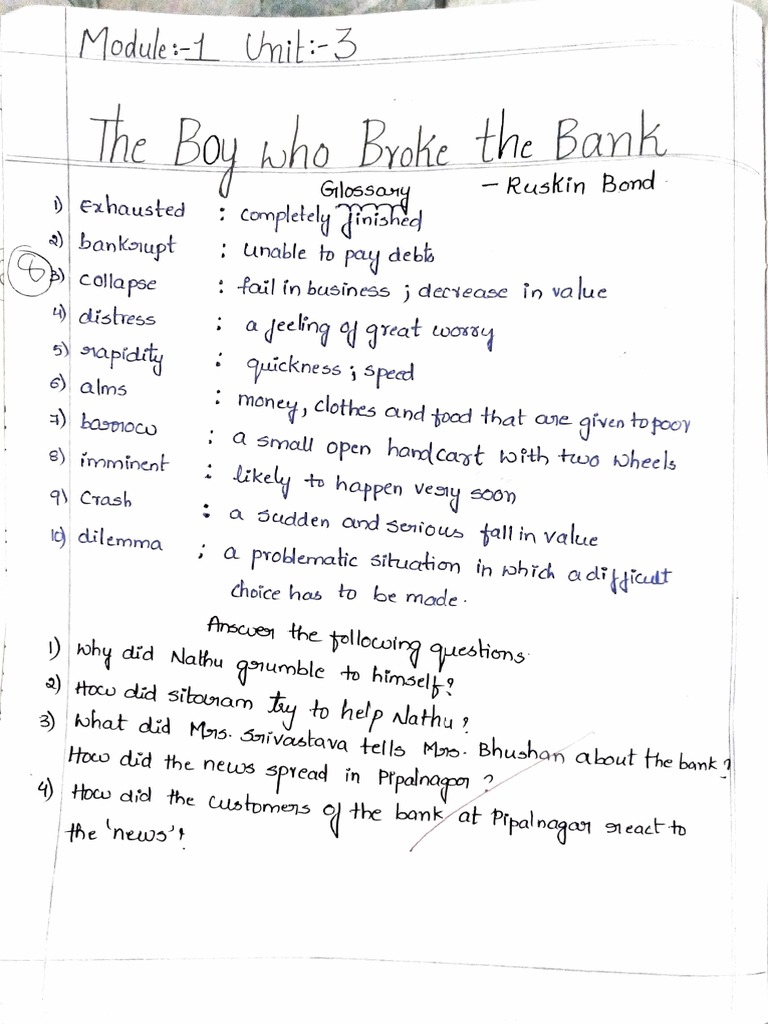 Module:-1 Unit:-3
The Boy who Broke the Bank
Glossary - Ruskin Bond
1) Exhausted : completely finished
2) bankrupt : unable to pay debts
8
3) collapse : fail in business ; decrease in value
4) distress : a feeling of great worry
5) rapidity : quickness ; speed
6) alms : money, clothes and food that are given to poor
7) barrow : a small open handcart with two wheels
8) imminent : likely to happen very soon
9) Crash : a sudden and serious fall in value
10) dilemma ; a problematic situation in which a difficult
choice has to be made.
Answer the following questions.
1) why did Nathu grumble to himself?
2) How did sitaram try to help Nathu?
3) what did Mrs. Srivastava tells Mrs. Bhushan about the bank?
How did the news spread in Pipalnagar?
4) How did the customers of the bank at Pipalnagar react to
the 'news'?